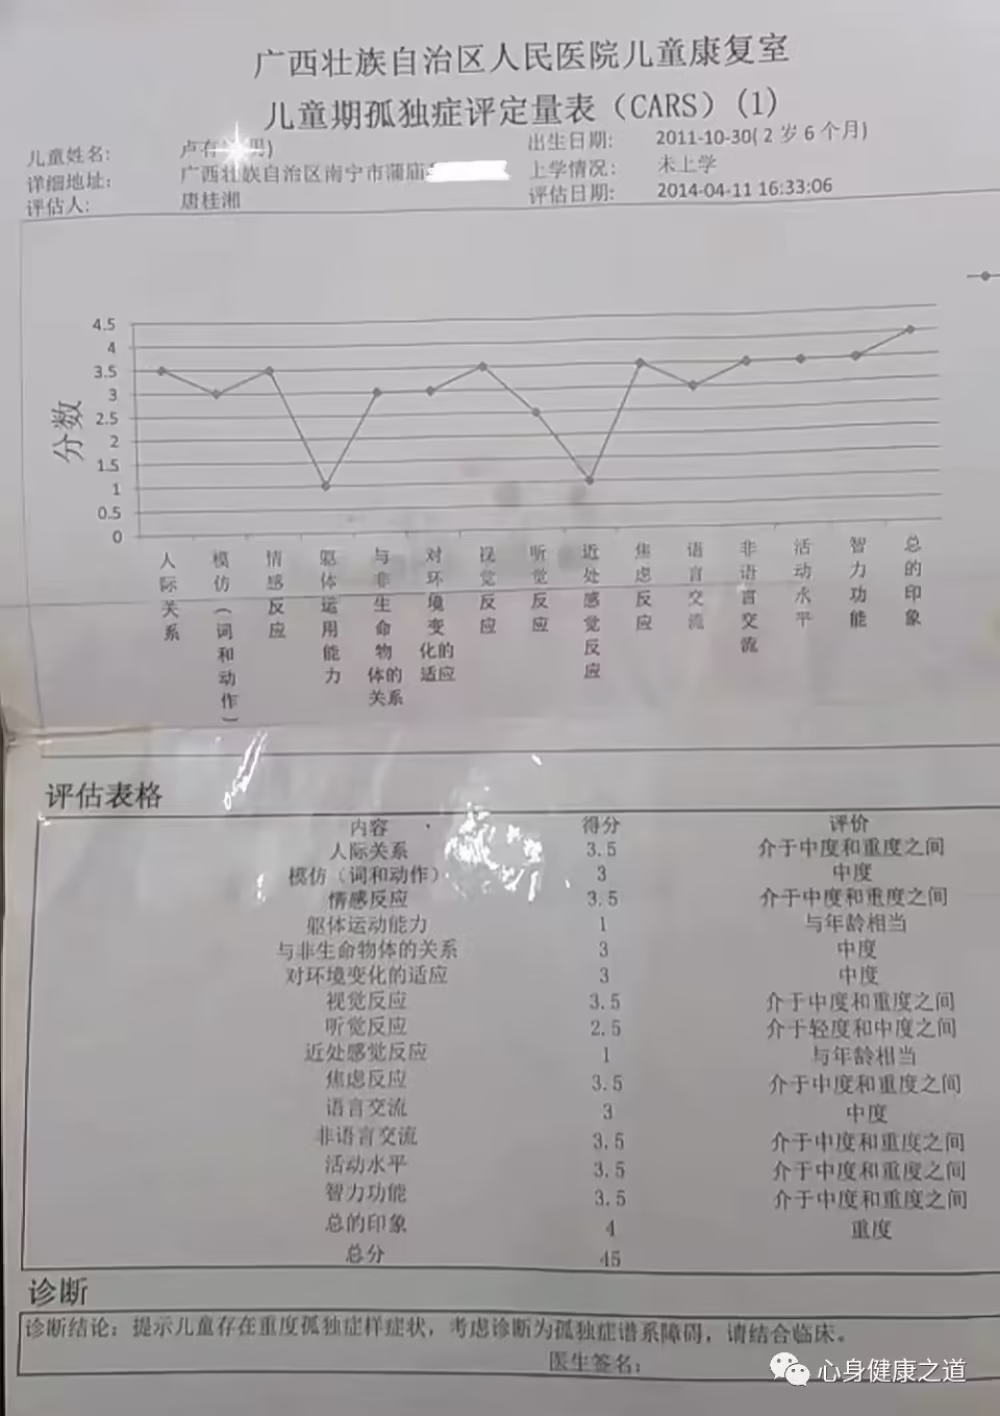 广西壮族自治区人民医院儿童康复室
儿童期孤独症评定量表（CARS）(1)
儿童姓名: 卢有 男) 出生日期: 2011-10-30( 2 岁 6 个月)
详细地址: 广西壮族自治区南宁市蒲庙 上学情况: 未上学
评估人: 唐桂湘 评估日期: 2014-04-11 16:33:06
分数
4.5
4
3.5
3
2.5
2
1.5
1
0.5
0
人际关系
模仿（词和动作）
情感反应
躯体运用能力
与非生命物体的关系
对环境变化的适应
视觉反应
听觉反应
近处感觉反应
焦虑反应
语言交流
非语言交流
活动水平
智力功能
总的印象
评估表格
内容 得分 评价
人际关系 3.5 介于中度和重度之间
模仿（词和动作） 3 中度
情感反应 3.5 介于中度和重度之间
躯体运动能力 1 与年龄相当
与非生命物体的关系 3 中度
对环境变化的适应 3 中度
视觉反应 3.5 介于中度和重度之间
听觉反应 2.5 介于轻度和中度之间
近处感觉反应 1 与年龄相当
焦虑反应 3.5 介于中度和重度之间
语言交流 3 中度
非语言交流 3.5 介于中度和重度之间
活动水平 3.5 介于中度和重度之间
智力功能 3.5 介于中度和重度之间
总的印象 4 重度
总分 45
诊断
诊断结论：提示儿童存在重度孤独症样症状，考虑诊断为孤独症谱系障碍，请结合临床。
医生签名：
心身健康之道